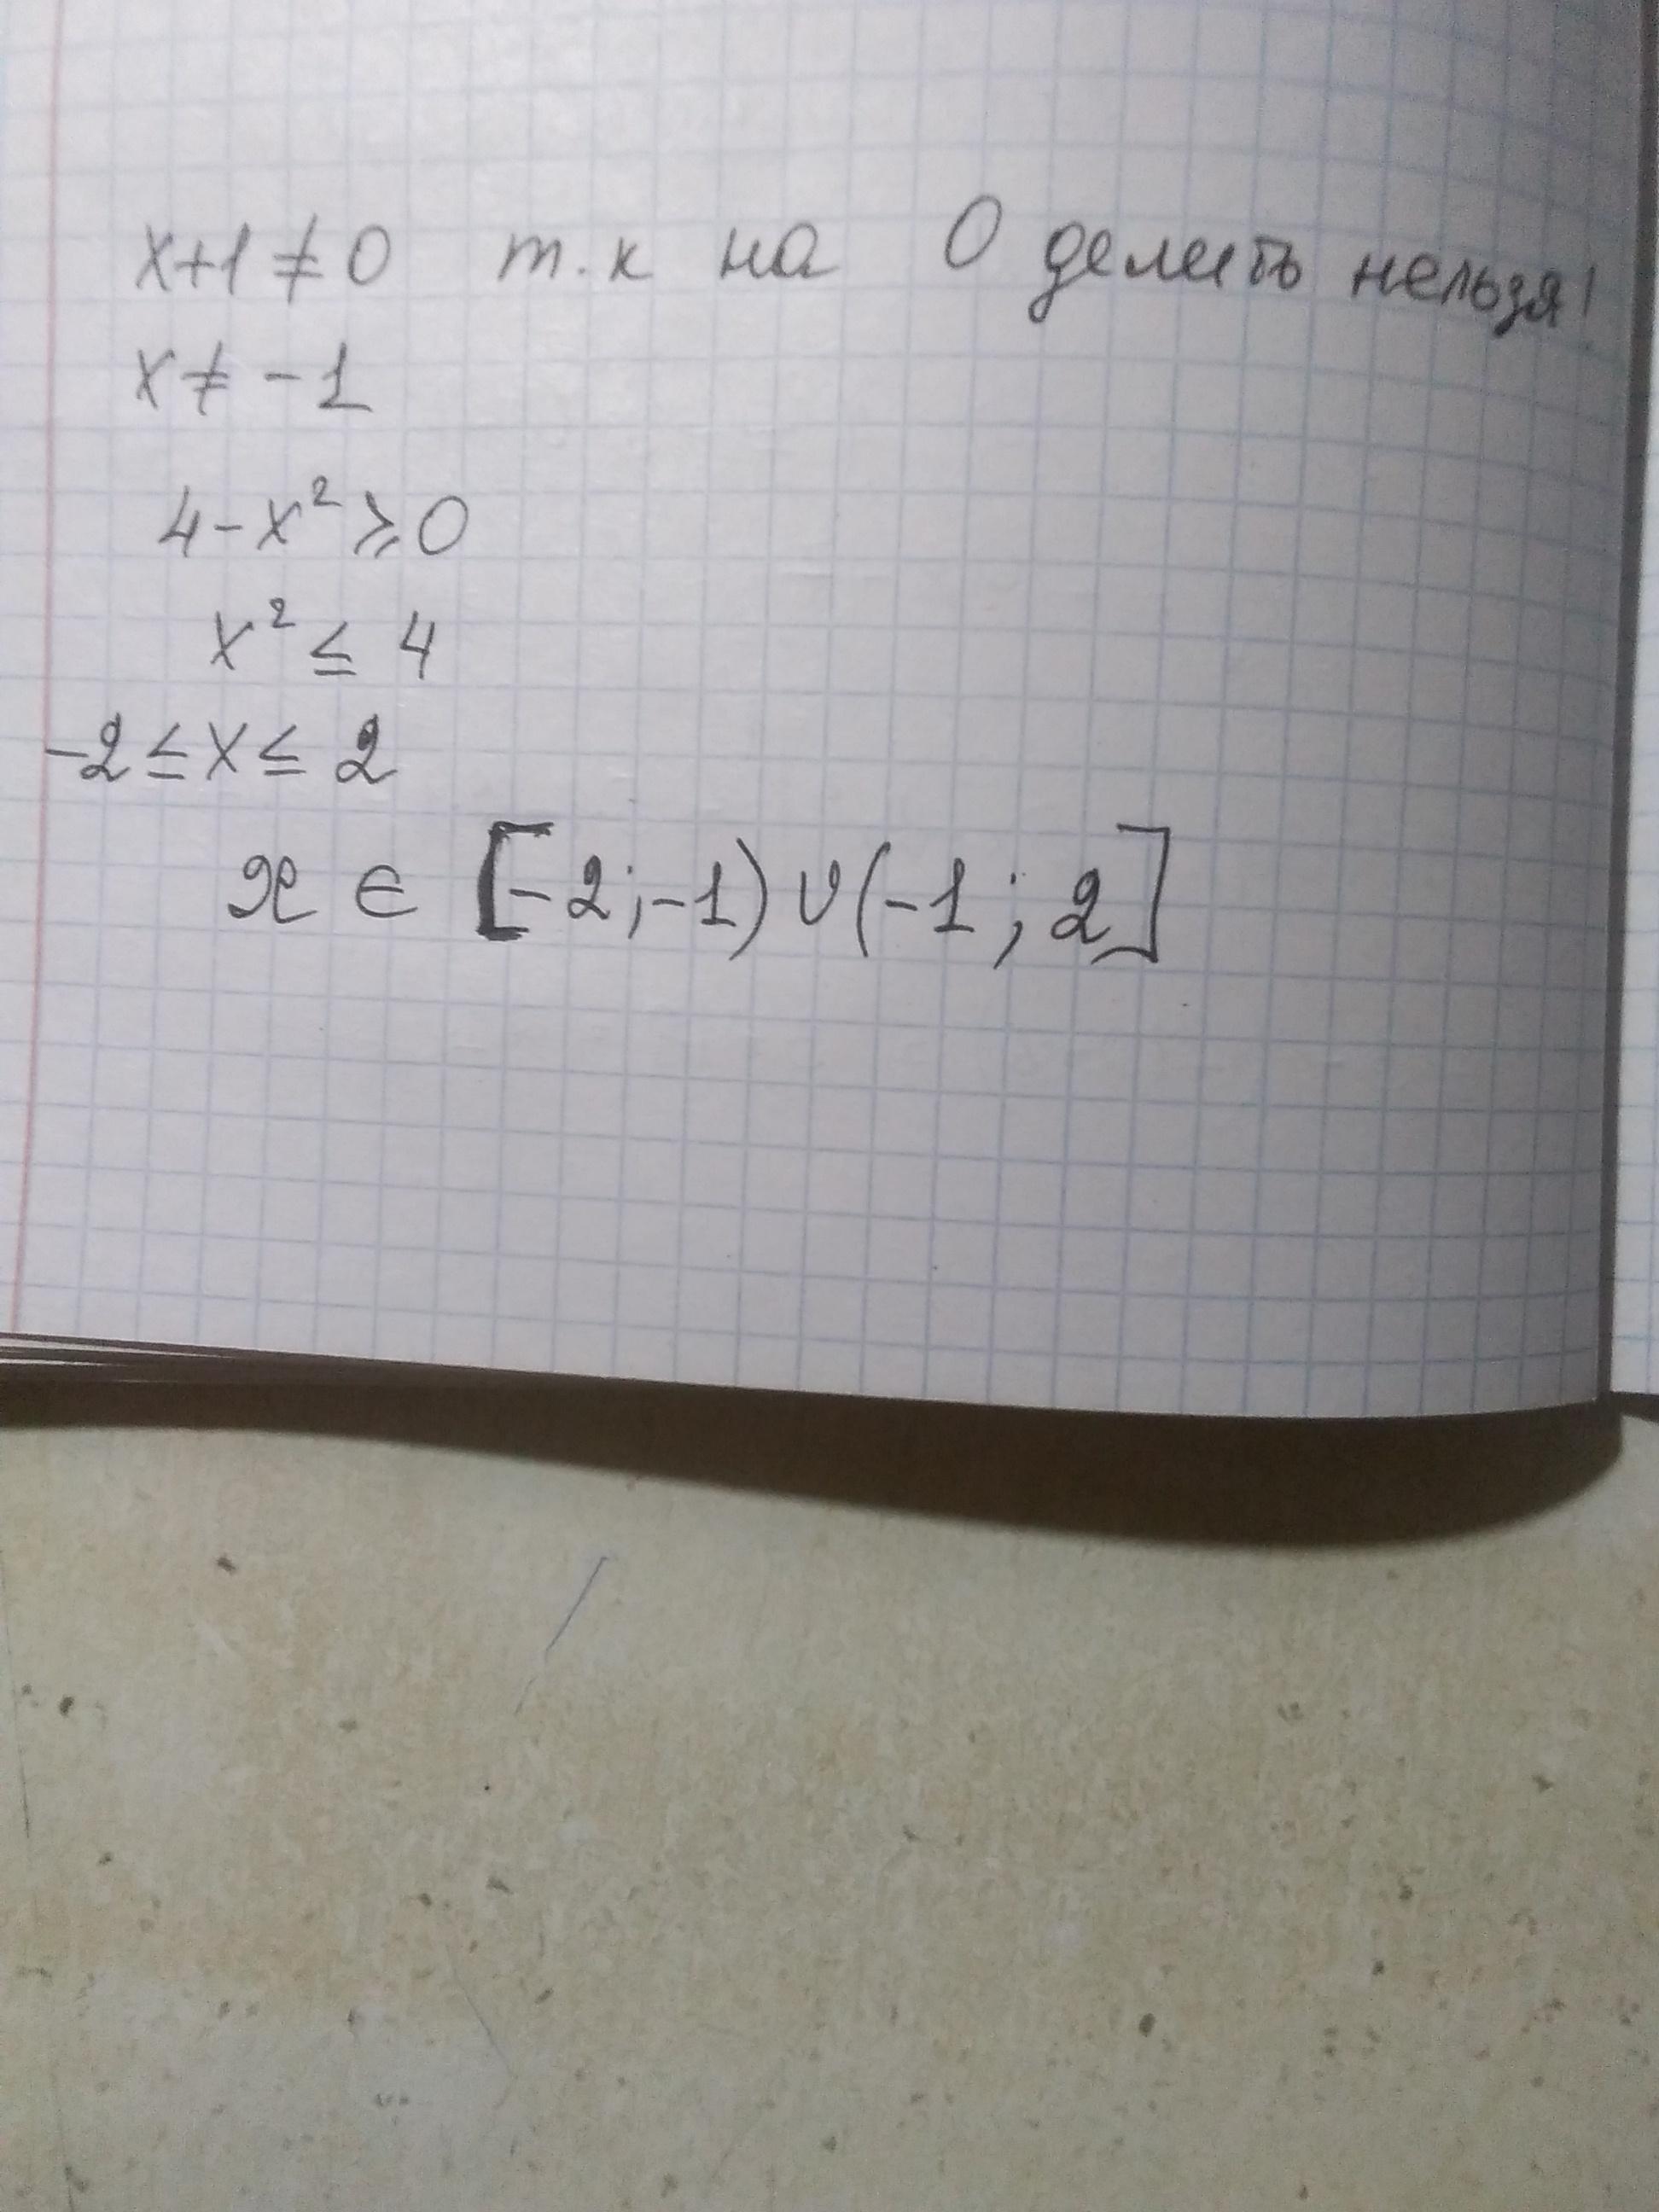 x+1≠0 т.к на 0 делить нельзя!
x≠-1
4-x²⩾0
x²≤4
-2≤x≤2
x∈[-2;-1)∪(-1;2]